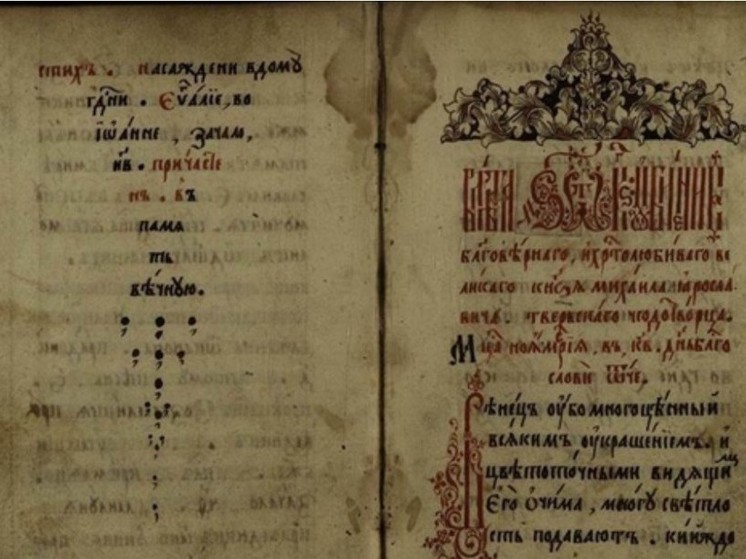 спихъ. насаждени вдомꙋ
гдⷭ҇ни. Єѵⷢ҇лїе, во
їѡанне, зачало,
н҃в. причастїе
нъ. въ
памѧ
ть
вѣчнꙋю.
благовѣрнаго, и хрⷭ҇толюбиваго ве
ликаго кнѧзѧ михаила ꙗросла
вича. тверскаго чюдотворца.
Мцⷭ҇а ноѧбрїѧ, въ, к҃в. дн҃ь благо
слови ѿче,
Вѣнецъ оубо многоцѣнный
всѧкимъ оукрашенїемъ. и
цвѣтоточными видѧщимъ
Єго очима, многꙋ свѣтло
сть подаваютъ. кийждо